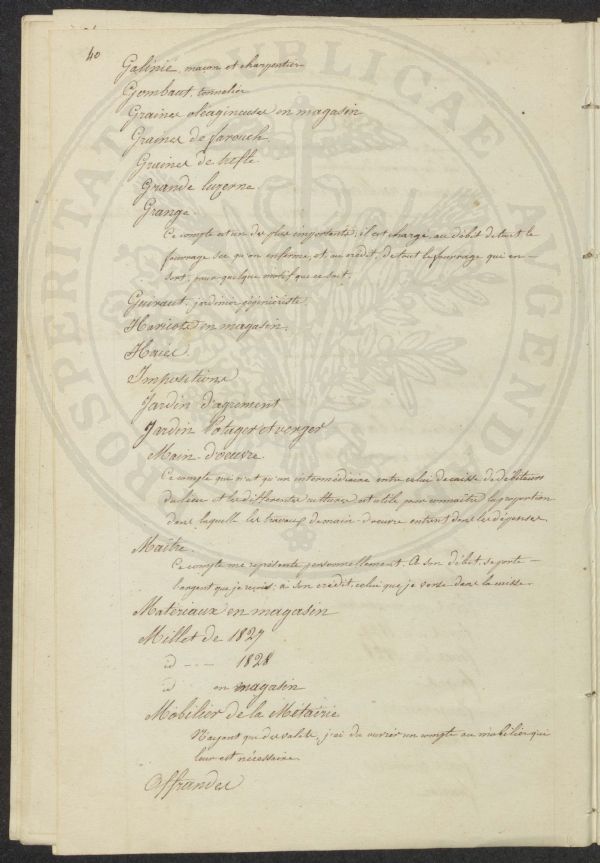 40
Galinié, maçon et charpentier
Gombaut, tonnelier
Graines oléagineuses en magasin
Graines de farouch
Graines de trefle
Grande luzerne
Grange
Ce compte est un des plus importants, il est chargé, au débit de tout le
fourrage sec qu'on enferme, et, au crédit, de tout le fourrage qui en
sort, pour quelque motif que ce soit.
Guiraut, jardinier pépinièriste
Haricots en magasin
Haies
Impositions
Jardin d'agrement
Jardin Potager et verger
Main-d'oeuvre
Ce compte qui n'est qu'un intermédiaire entre celui de caisse, de débiteurs
du lieu et les différentes cultures est utile pour connaître la proportion
dans laquelle les travaux de main-d'oeuvre entrent dans les dépenses.
Maître
Ce compte me représente personnellement. A son débit, se porte
l'argent que je reçois; à son crédit, celui que je verse dans la caisse.
Matériaux en magasin
Millet de 1827
id --- 1828
id en magasin
Mobilier de la Métairie
N'ayant que des valets, j'ai du ouvrir un compte au mobilier qui
leur est nécessaire.
Offrandes
PROSPERITATI PUBLICAE AUGENDAE